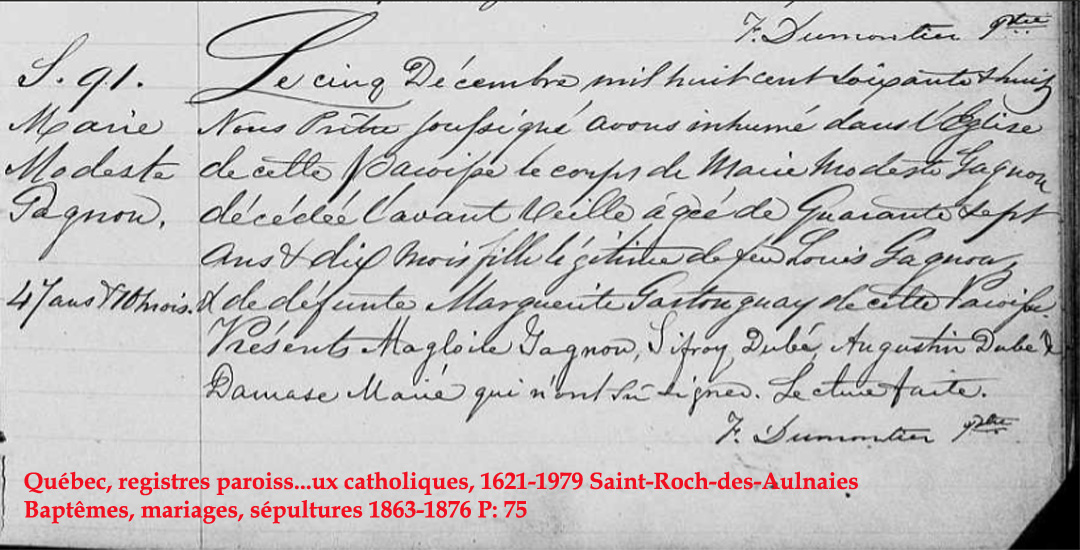 F. Dumontier Ptre
S. 91.
Marie
Modeste
Gagnon.
47 ans & 10 mois.
Le cinq Décembre mil huit cent soixante & huit
Nous Prêtre soussigné avons inhumé dans l'Eglise
de cette Paroisse le corps de Marie Modeste Gagnon
décédée l'avant veille âgée de Quarante & sept
ans & dix mois fille légitime de feu Louis Gagnon
& de défunte Marguerite Gastonguay de cette Paroisse.
Présents Magloire Gagnon, Sifroy Dubé, Augustin Dubé &
Damase Marié qui n'ont su signer. Lecture faite.
F. Dumontier Ptre
Québec, registres paroiss...ux catholiques, 1621-1979 Saint-Roch-des-Aulnaies
Baptêmes, mariages, sépultures 1863-1876 P: 75